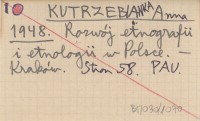 KUTRZEBIANKA Anna
1948. Rozwój etnografii
i etnologii w Polsce. —
Kraków. Stron 58. PAU.